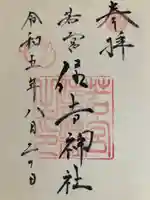 奉拝
若宮
住吉神社
令和五年八月二十日